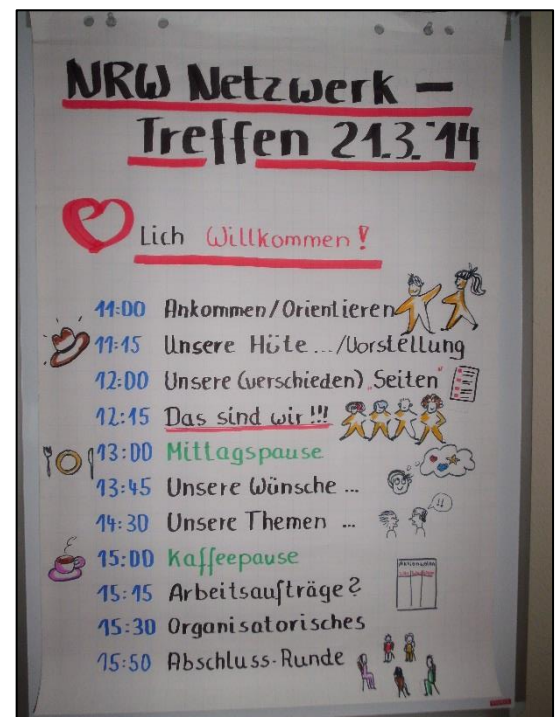 NRW Netzwerk –
Treffen 21.3.'14
Lich Willkommen!
11:00 Ankommen/Orientieren
11:15 Unsere Hüte .../Vorstellung
12:00 Unsere (verschieden) „Seiten"
12:15 Das sind wir!!!
13:00 Mittagspause
13:45 Unsere Wünsche ...
14:30 Unsere Themen ...
!!
15:00 Kaffeepause
15:15 Arbeitsaufträge?
15:30 Organisatorisches
15:50 Abschluss-Runde